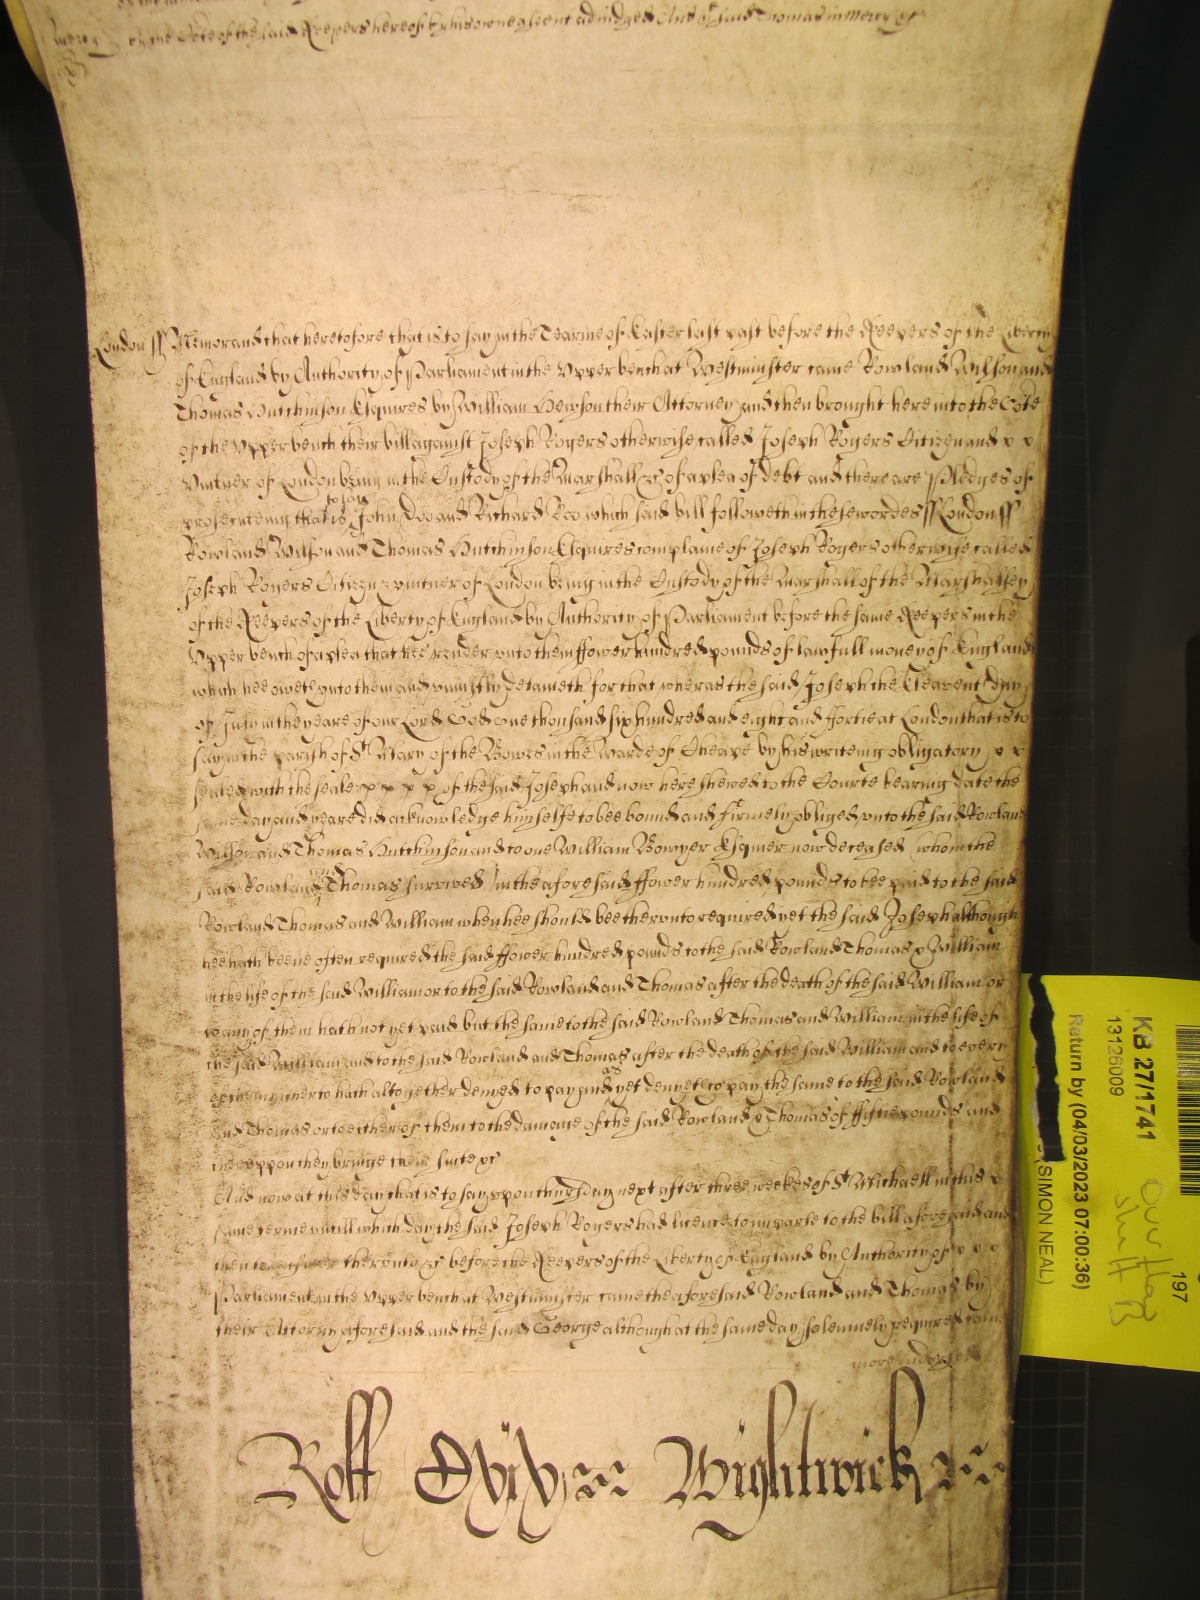 by the Co̅te of the said Keepers here of by his owne assent adiudged And the said Thomas in Mercy &c
London ss Memorand that heretofore that is to say in the Tearme of Easter last past before the Keepers of the Liberty
of England by Authority of Parliament in the Upper bench at Westminster came Rowland Wilson and
Thomas Hutchinson Esquires by William Hewson their Attorney and then brought here into the Co̅te
of the Upper bench their bill against Joseph Rogers otherwise called Joseph Rogers Citizen and x x
Vintner of London being in the Custody of the Marshall &c of a plea of debt and there are Pledges of
prosecuteing that is to say John Doo and Richard Roo which said bill followeth in these wordes ss London ss
Rowland Wilson and Thomas Hutchinson Esquires complaine of Joseph Rogers otherwise called
Joseph Rogers Citizen & vintner of London being in the Custody of the Marshall of the Marshalsey
of the Keepers of the Liberty of England by Authority of Parliament before the same Keepers in the
Upper bench of a plea that hee render unto them ffower hundred pounds of lawfull money of England
which hee oweth unto them and uniustly detaineth for that wheras the said Joseph the Eleaventh day
of July in the yeare of our Lord God one thousand six hundred and eight and ffortie at London that is to
say in the parish of St Mary of the Bowes in the Warde of Cheape by his writeing obligatory x x
sealed with the seale x x x x of the said Joseph and now here shewed to the Courte bearing date the
same day and yeare did acknowledge himselfe to bee bound and firmely obliged unto the said Rowland
Wilson and Thomas Hutchinson and to one William Bowyer Esquier now deceased whom the
said Rowland and Thomas survived in the aforesaid ffower hundred pounds to bee paid to the said
Rowland Thomas and William when hee should bee therunto required yet the said Joseph although
hee hath beene often required the said ffower hundred pounds to the said Rowland Thomas & William
in the life of the said William or to the said Rowland and Thomas after the death of the said William or
to any of them hath not yet paid but the same to the said Rowland Thomas and William in the life of
the said William and to the said Rowland and Thomas after the death of the said William and to every
of them hitherto hath altogether denyed to pay and as yet denyeth to pay the same to the said Rowland
and Thomas or to either of them to the damage of the said Rowland & Thomas of ffiftie pounds and
thereuppon they bringe their suite &c
And now at this day that is to say uppon thursday next after three weekes of St Michaell in this x
same terme untill which day the said Joseph Rogers had licence to imparle to the bill aforesaid and
then to answer therunto &c before the Keepers of the Liberty of England by Authority of x x x
Parliament in the Upper bench at Westminster came the aforesaid Rowland and Thomas by
their Attorny aforesaid and the said George although at the same day solemnely required came
more indorsed
Roll CXCVII Wightwick
KB 27/1741
13126009
Return by (04/03/2023 07:00:36)
(SIMON NEAL)
197